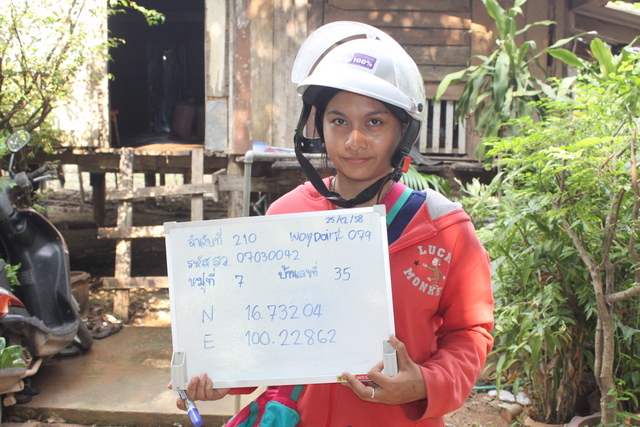 100%
25/12/58
ลำดับที่ 210 Waypoint 079
รหัส สว 07030042
หมู่ที่ 7 บ้านเลขที่ 35
N 16.73204
E 100.22862
LUCA
MONKEY